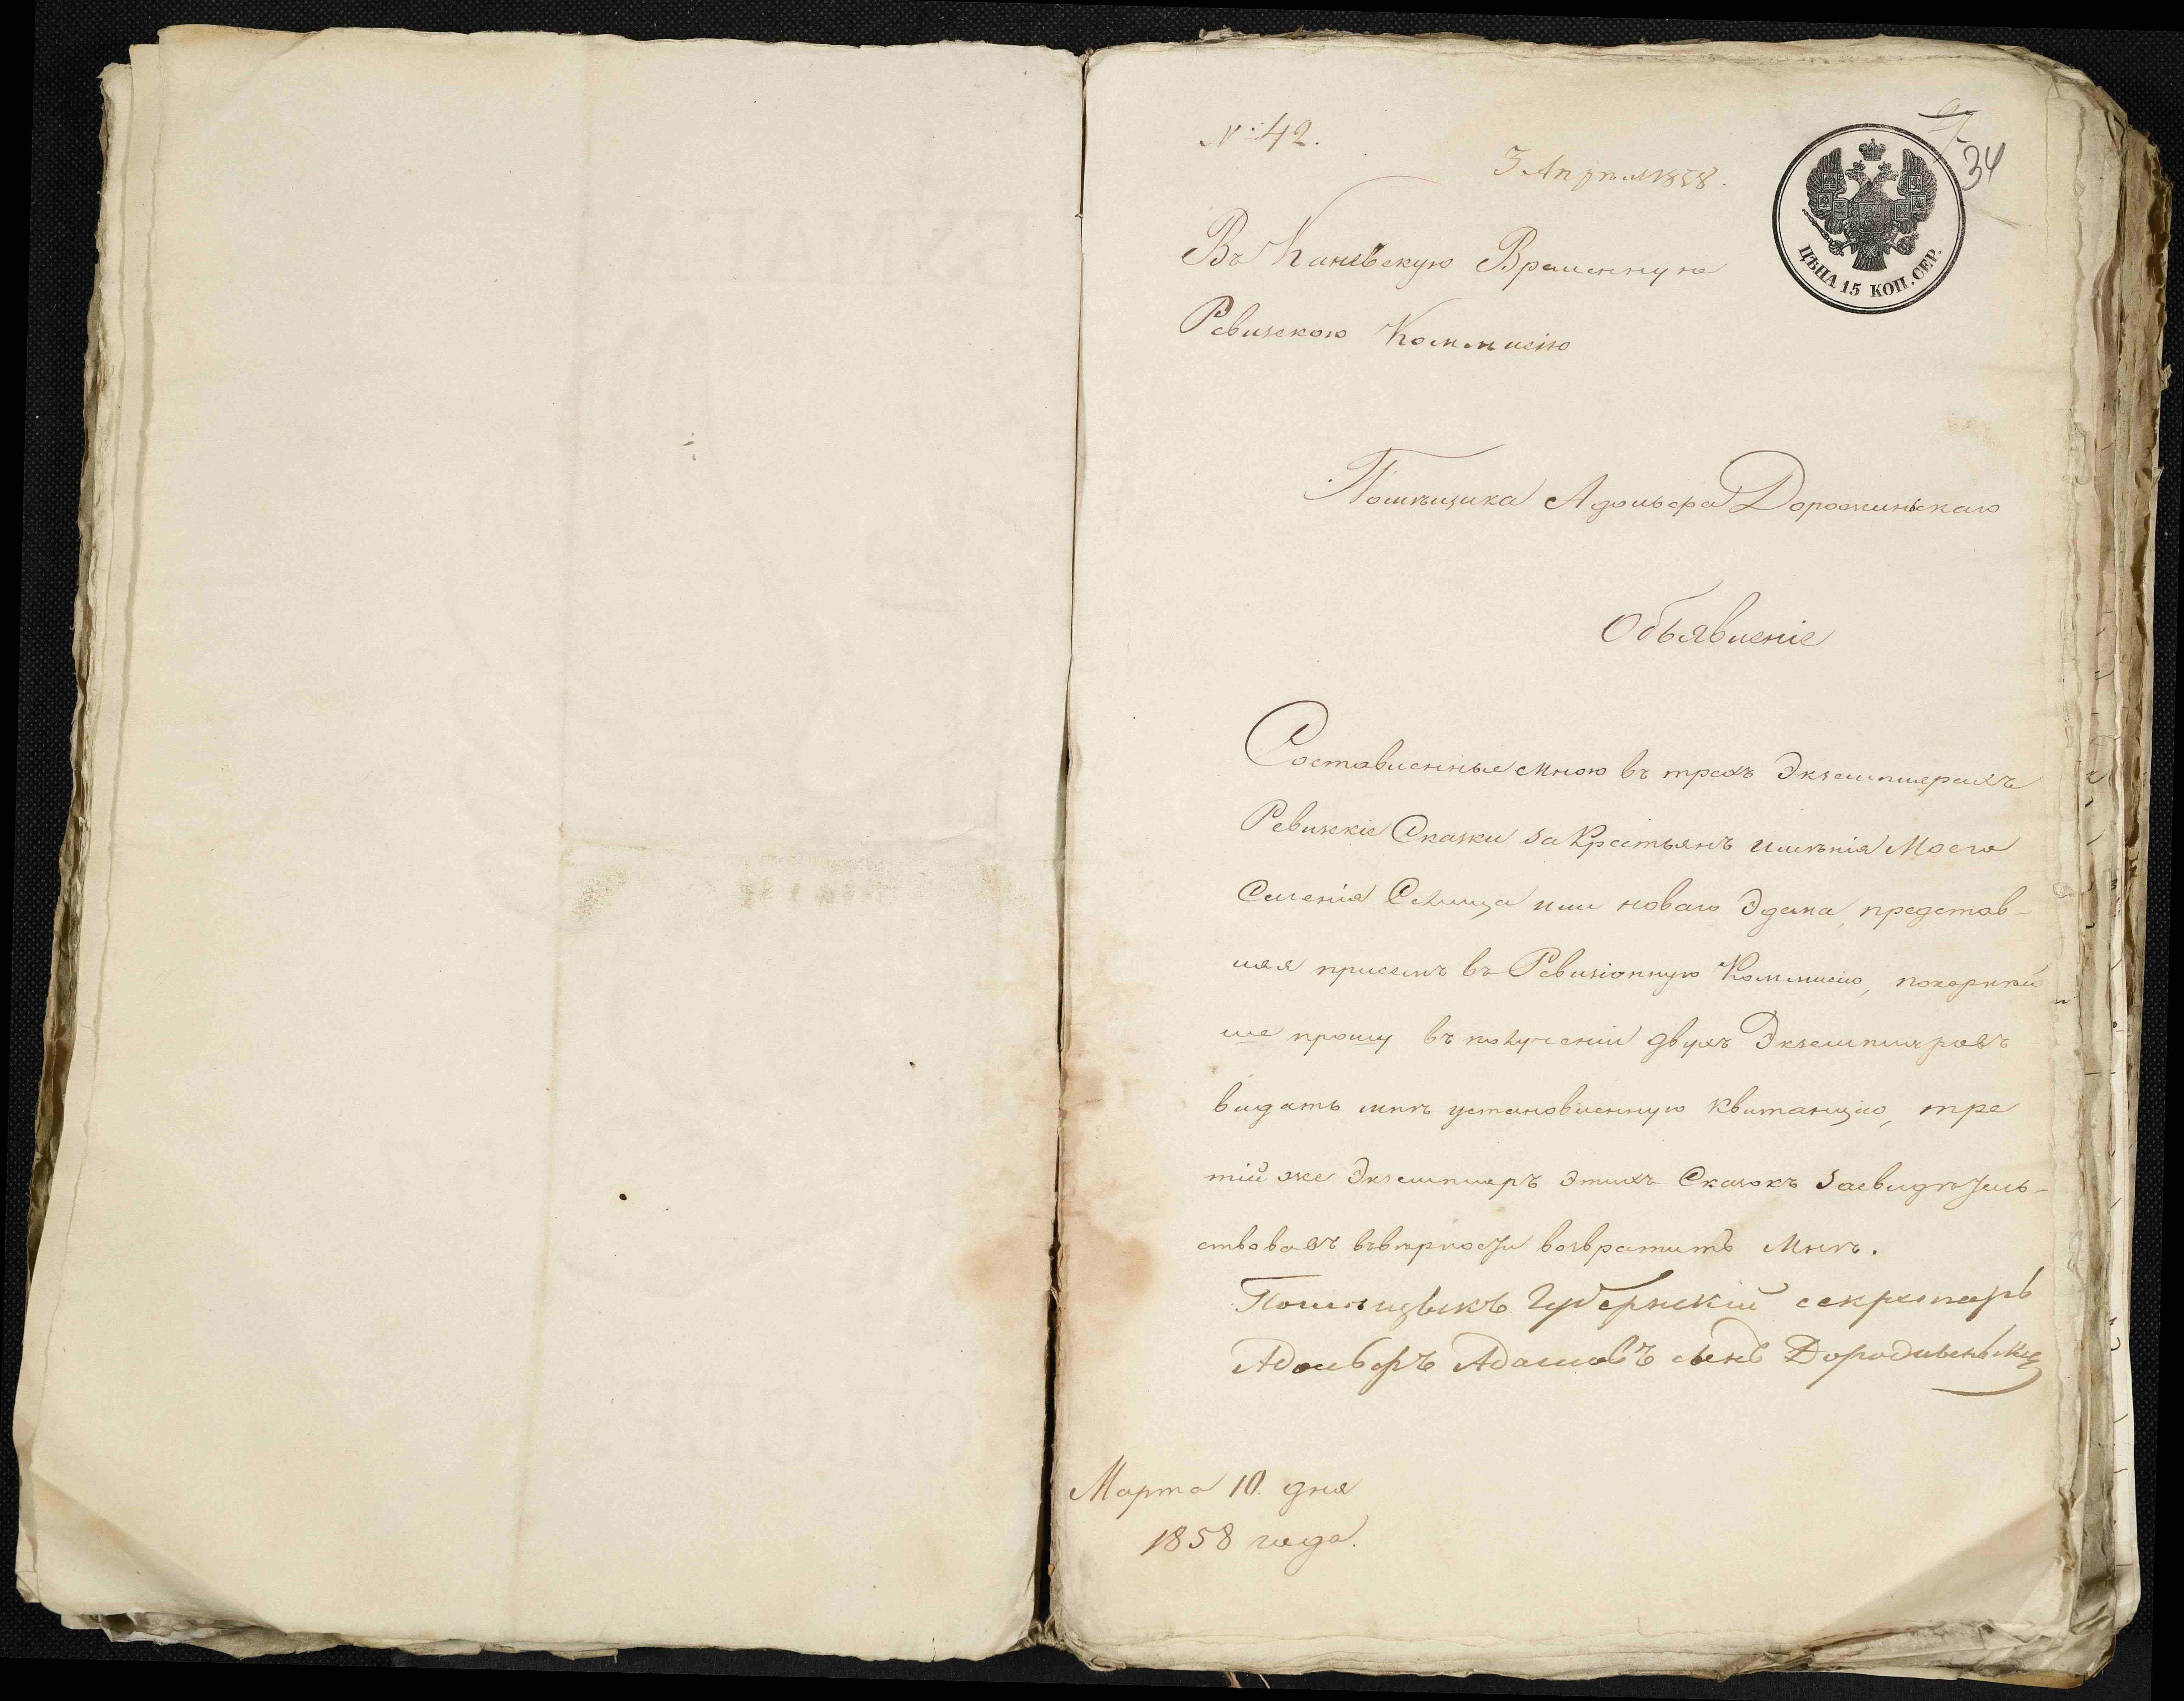 № 42.
3 Апреля 1858.
34
ЦѢНА 15 КОП. СЕР.
Въ Каневскую Временную
Ревизскою Коммисію
Помѣщика Адольфа Дорожинскаго
Объявленіе
Составленные мною въ трехъ Экземплерахъ
Ревизскіе Сказки за Крестьянъ имѣнія Моего
Селенія Селища или новаго Эдема, представ-
ляя присемъ въ Ревизіонную Коммисію, покорнѣй
ше прошу въ полученіи двухъ Экземпляровъ
видать мнѣ установленную Квитанцію, тре
тій же Экземпляръ этихъ Сказокъ засвидѣтель-
ствовавъ въвѣрности возвратить Мнѣ.
Помѣщыкъ Губернскій секретарь
Адольфъ Адамовъ сынъ
Марта 10 дня
1858 года.